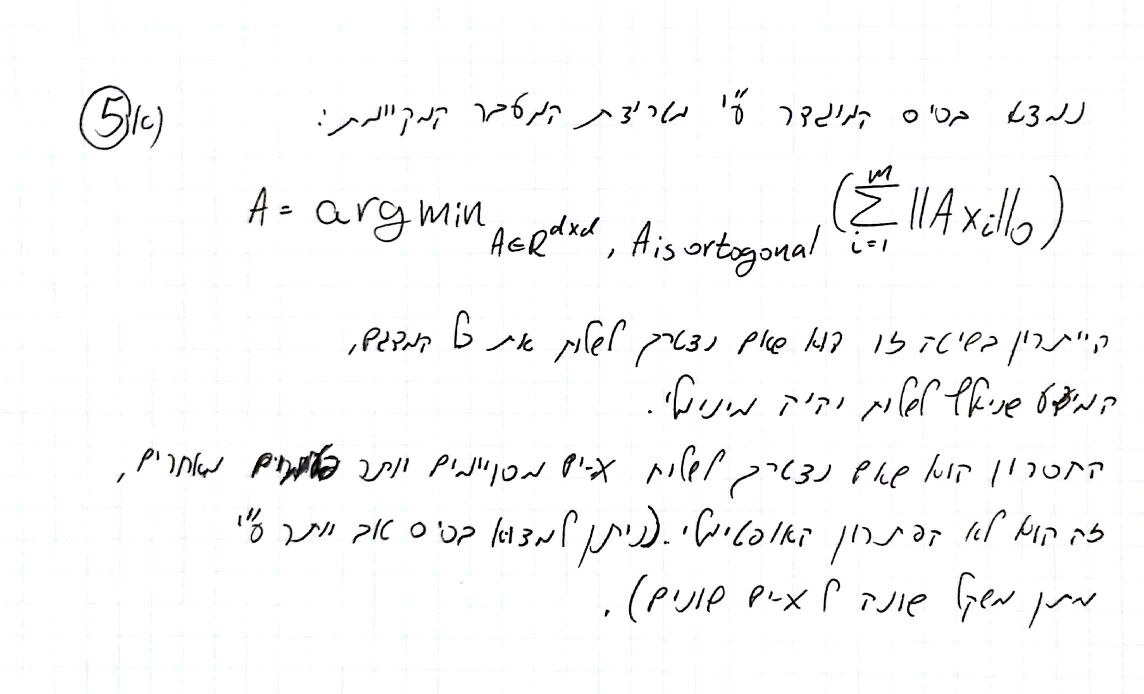 5) א)
נמצא בסיס המוגדר ע"י מטריצת המעבר המקיימת:
A = argmin_{A∈R^{d×d}, A is ortogonal} (∑_{i=1}^{m} ||Ax_i||_0)
היתרון בשיטה זו הוא שאם נצטרך לשלוח את כל המדגם,
המידע שניאלץ לשלוח יהיה מינימלי.
החסרון הוא שאם נצטרך לשלוח x-ים מסויימים יותר מאחרים,
זה הוא לא הפתרון האופטימלי. (ניתן למצוא בסיס טוב יותר ע"י
מתן משקל שונה ל x-ים שונים).